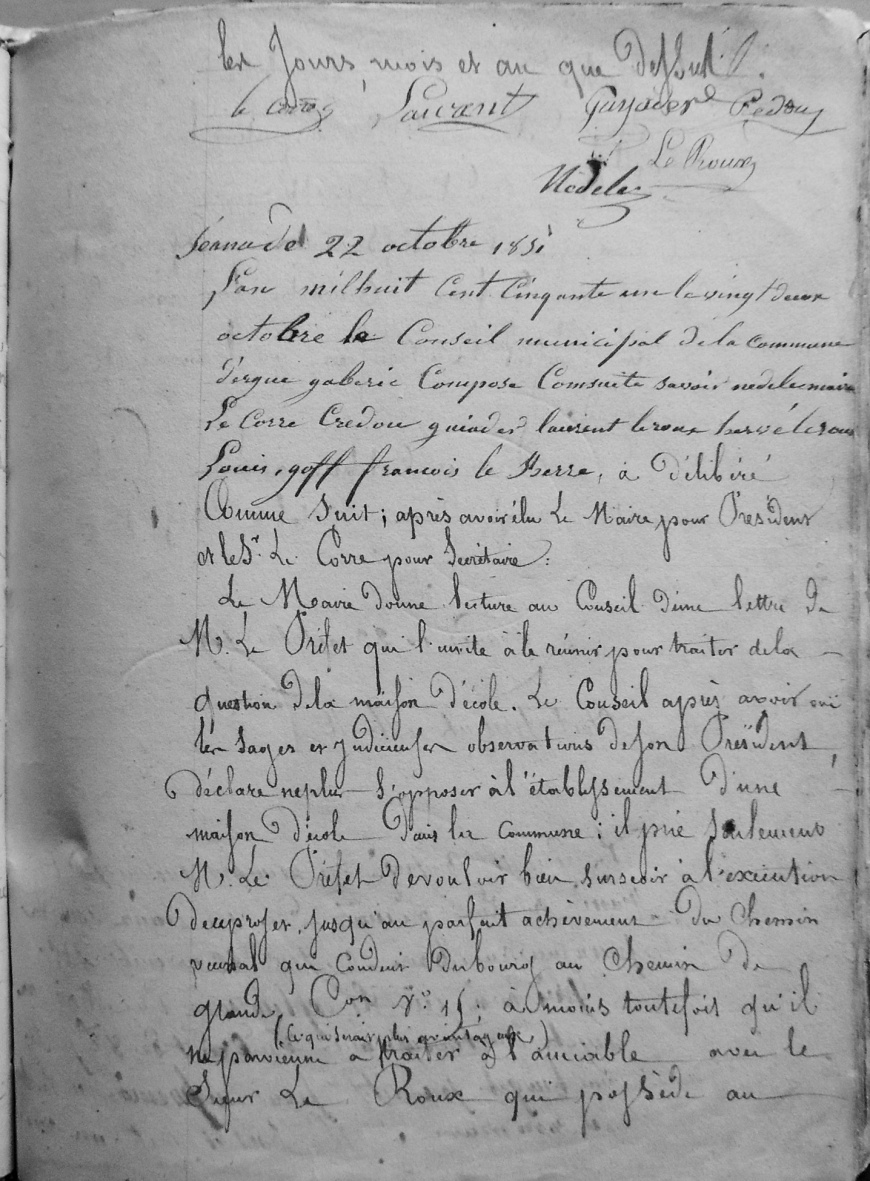 les Jours, mois et an que dessus.
Le Corre Laurent Guyader Credou
Le Roux
Nédélec
Séance du 22 octobre 1851
L'an mil huit Cent Cinquante une le vingt deux
octobre le Conseil municipal de la commune
d'ergue gaberic Compose Comsuite savoir nedelec maire
Le Corre Credou guiader laurent leroux hervé leroux
Louis, goff francois le Berre, à délibéré
Comme Suit; après avoir élu Le Maire pour Président
et le Sr. Le Corre pour Secrétaire:
Le Maire donne lecture au Conseil d'une lettre de
M. Le Préfet qui l'invite à le réunir pour traiter de la
question de la maison d'école. Le Conseil après avoir oui
les sages et judicieuses observations de son Président,
déclare ne plus s'opposer à l'établissement d'une
maison d'école dans la commune; il prie seulement
M. Le Préfet de vouloir bien surseoir à l'exécution
de ce projet, jusqu'au parfait achèvement du Chemin
vicinal qui conduit du bourg au Chemin de
grande Con No 15. à moins toutefois qu'il
(Ce qui serait plus avantageux)
ne parvienne à traiter à l'amiable avec le
Sieur Le Roux qui possède au